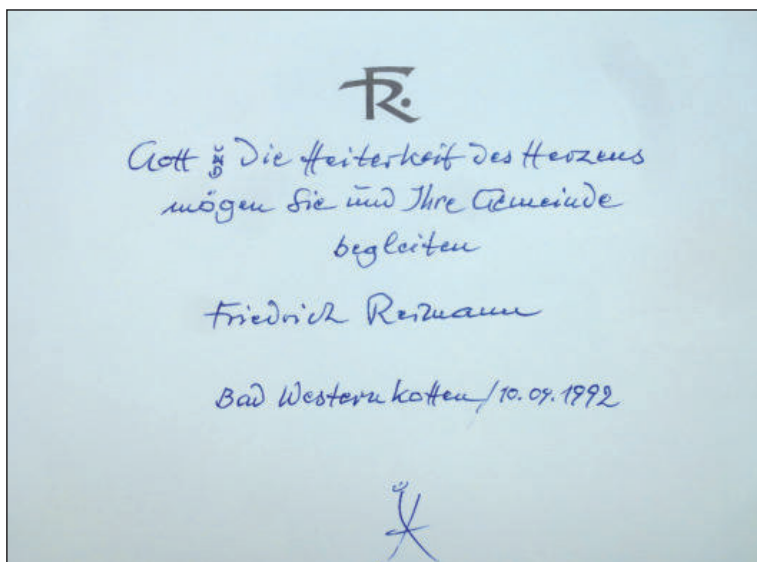 FR.
Gott und die Heiterkeit des Herzens
mögen Sie und Ihre Gemeinde
begleiten
Friedrich Reimann
Bad Westernkotten/10.09.1992